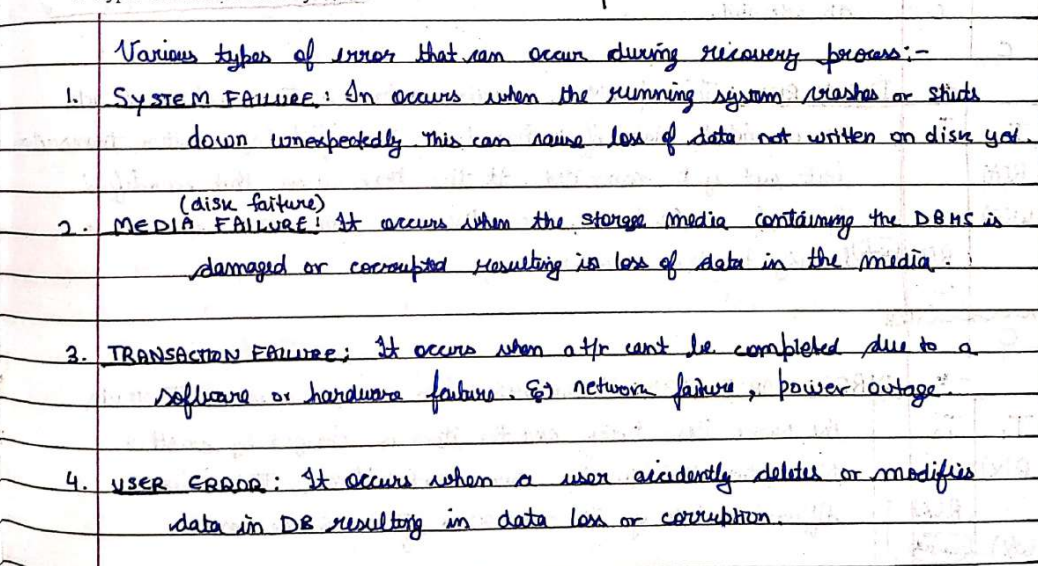 Various types of error that can occur during recovery process:-
1. SYSTEM FAILURE: In occurs when the running system crashes or shuts
down unexpectedly This can cause loss of data not written on disk yet.
(disk failure)
2. MEDIA FAILURE: It occurs when the storage media containing the DBMS is
damaged or corrupted resulting in loss of data in the media.
3. TRANSACTION FAILURE: It occurs when a t/r can't be completed due to a
software or hardware failure. Eg) network failure, power outage.
4. USER ERROR: It occurs when a user accidently deletes or modifies
data in DB resulting in data loss or corruption.